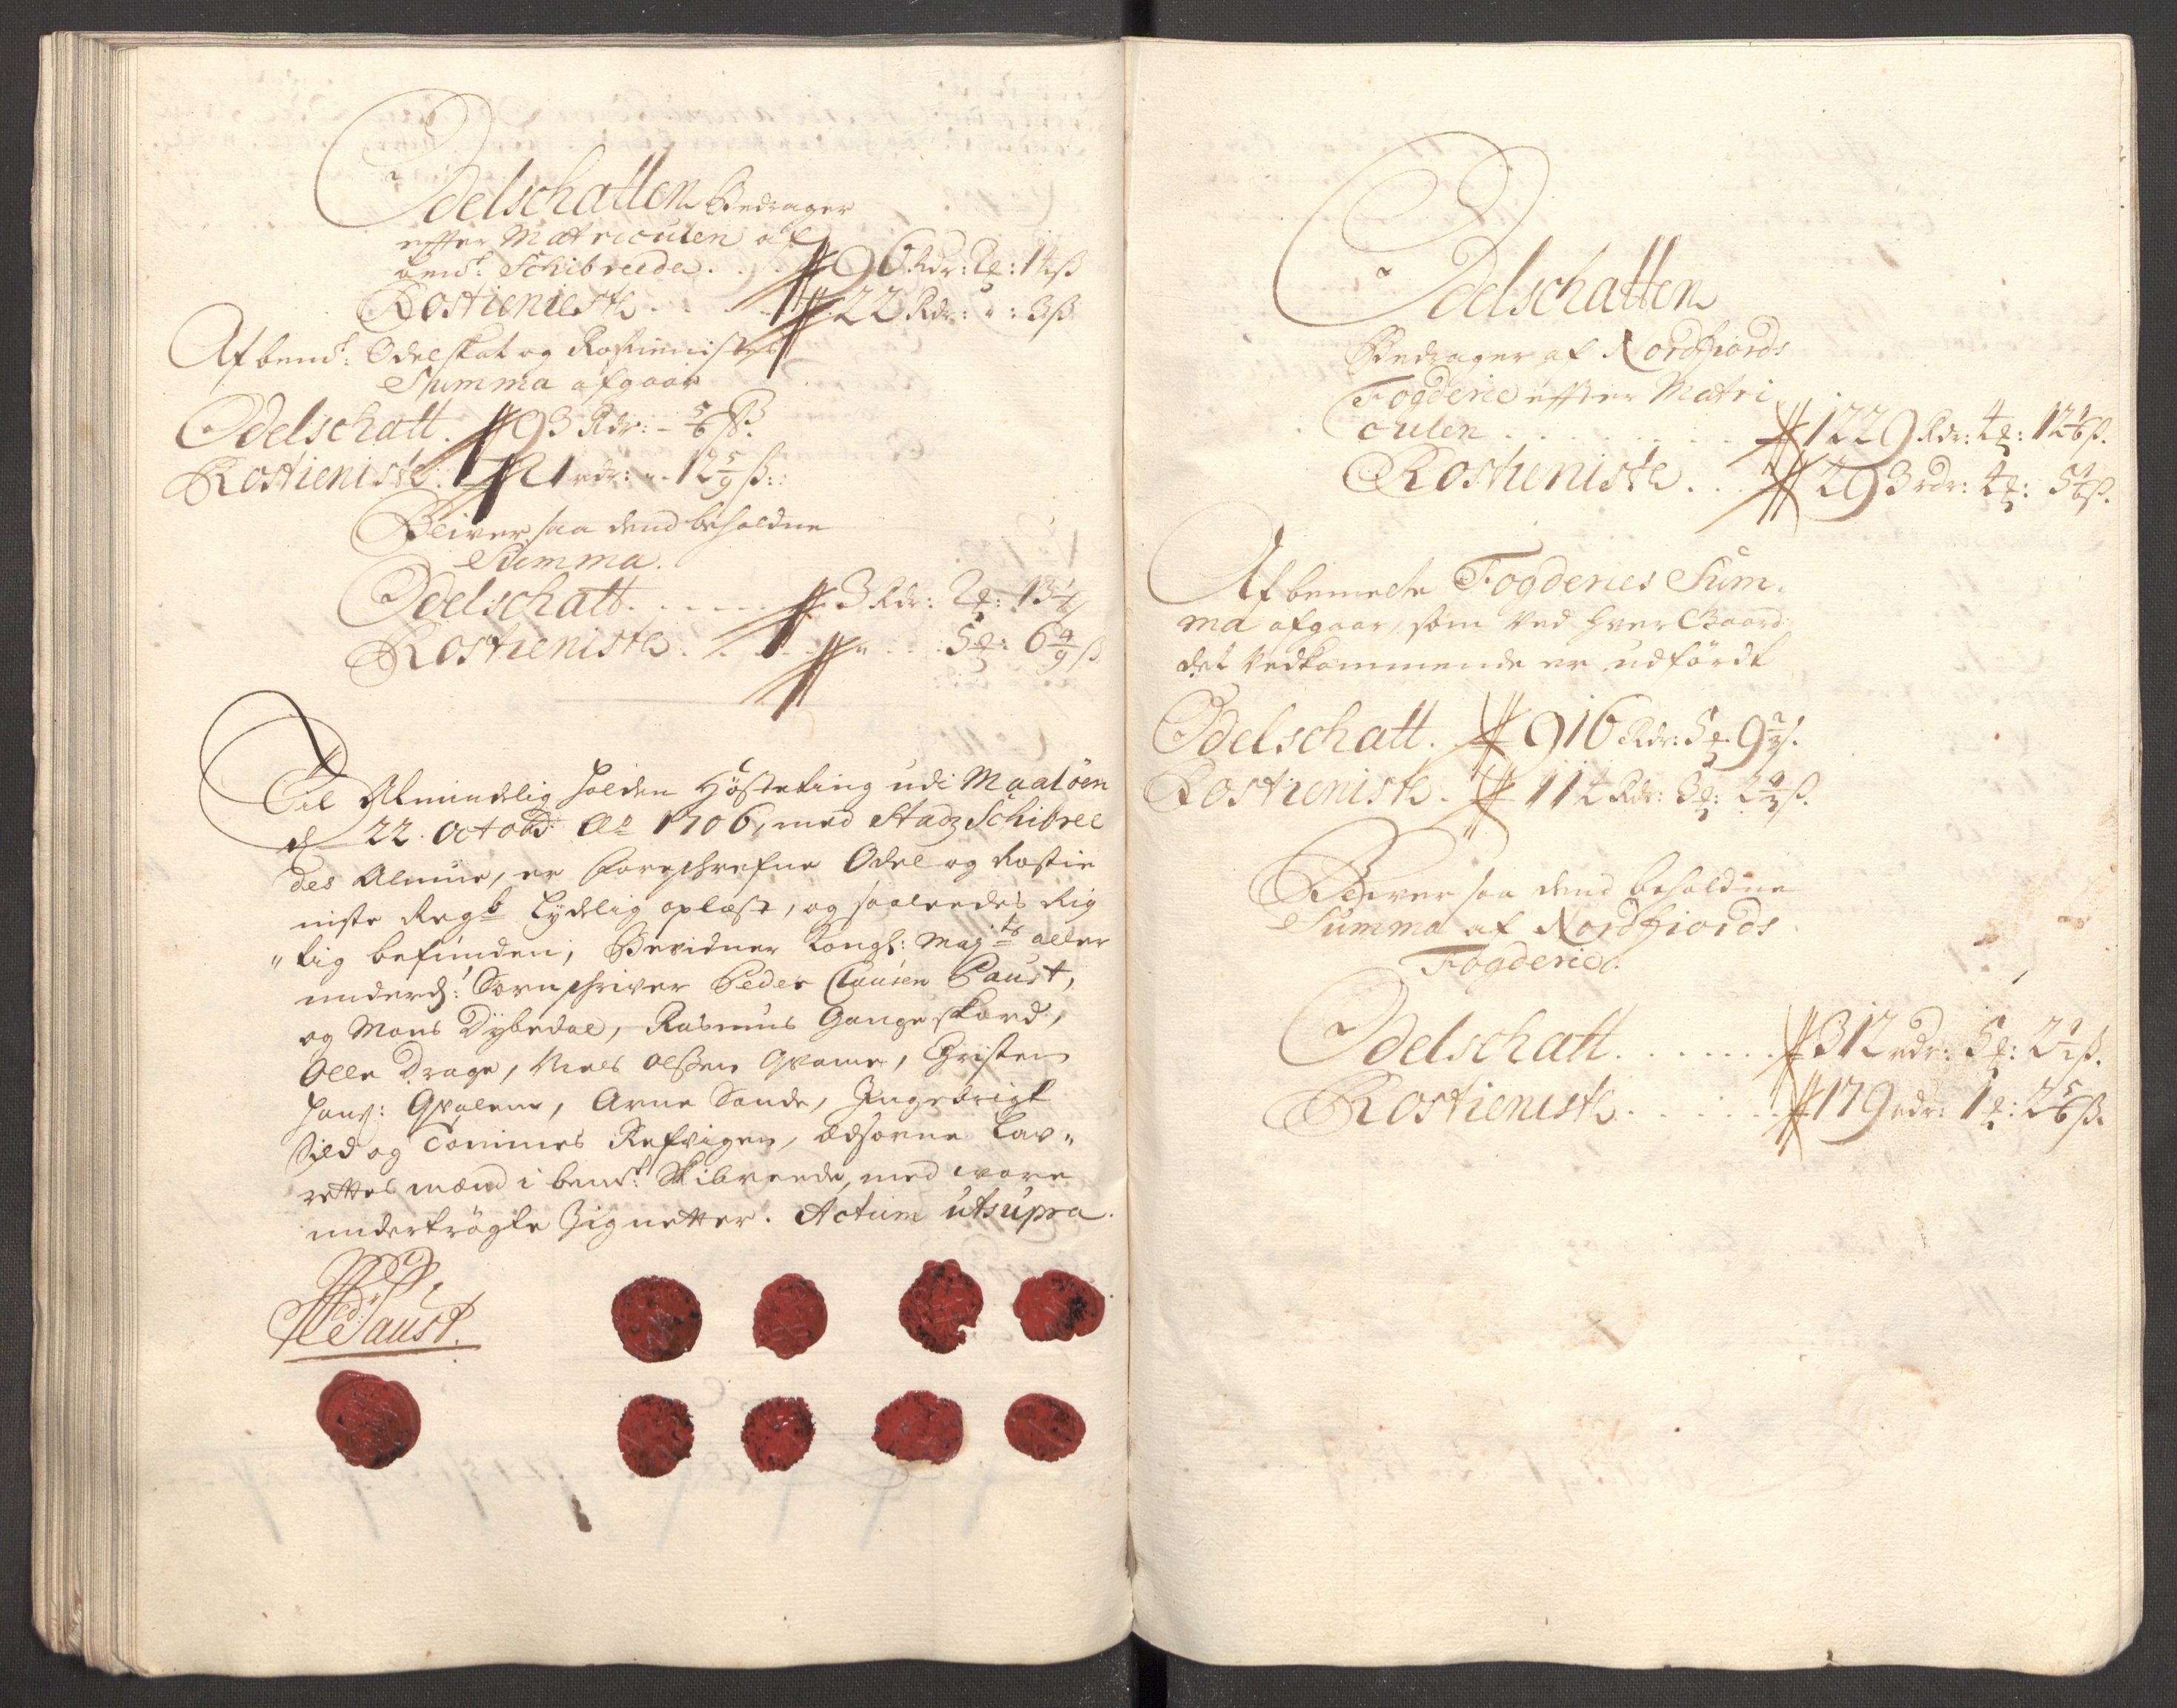 Odelschatten Bedrager
efter Matriculen af
bemt: Schibreede . . 96 Rdr: 2 : 14 ß
Rostieniste . . . 22 Rdr: " : 3 ß
Af bemt: Odelskat og Rostienistes
Summa afgaar
Odelschatt . 93 Rdr: - 5/6 ß.
Rostieniste . 21 rdr: " - 12 5/9 ß:
Bliver saa dend beholdne
Summa.
Odelschatt . . . . 3 Rdr: 2 : 13
Rostieniste . . . " . . 5 : 6 4/9 ß
Til Almindelig holden Høsteting udi Maaløen
d 22. Octobr Ao 1706, med Stadz Schibree
des Almue, er forschrefne Odel og Rostie
niste Regr lydelig oplæst, og saaleedes Rig
"tig befunden, Bevidner Kongl: Mayts aller
underd: Sorenschriver Peder Clausen Paust,
og Mons Dybedal, Rasmus Gangeskard,
Olle Drage, Niels Olsen Qvame, Christen
Hans: Qvalene, Arne Sande, Ingebrigt
Sild og Tommes Refvigen, Edsorne Lav"
rettes mænd i bemt: Skibreede, med vore
undertrøgte Zignetter. Actum ut supra.
Paust.
Odelschatten
Bedrager af Nordfiords
Fogderie efter Matri
culen . . . . . 1229 Rdr: 4 : 12 1/6 ß.
Rostieniste . . 293 rdr: 4 : 5 ß.
Af bemelte Fogderies Sum,
ma afgaar, som ved hver Gaard
det vedkommende er udført
Odelschatt . 916 Rdr: 5 9 2/3 ß.
Rostieniste . 114 Rdr: 3 : 2 ß.
Bliver saa dend beholdne
Summa af Nordfiords
Fogderie.
Odelschatt . . . . . 312 rdr: 5 : 2 1/2 ß.
Rostieniste . . . . . 179 rdr: 1 : 2 5/6 ß.